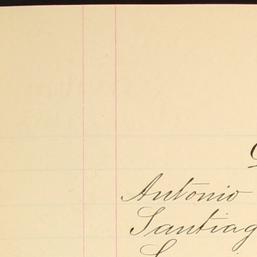 Antonio
Santiag